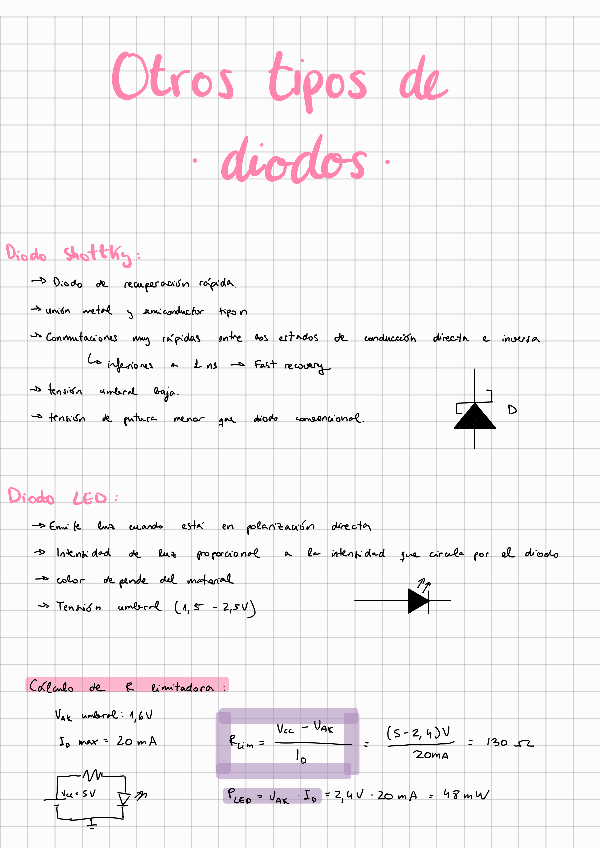 Otros tipos de
· diodos ·
Diodo shottky:
→ Diodo de recuperación rápida
→ unión metal y semiconductor tipo n
→ Conmutaciones muy rápidas entre los estados de conducción directa e inversa
↳ inferiores a 1 ns → Fast recovery
→ tensión umbral baja.
→ tensión de rutura menor que diodo convencional.
D
Diodo LED:
→ Emite luz cuando está en polarización directa
→ Intensidad de luz proporcional a la intensidad que circula por el diodo
→ color depende del material
→ Tensión umbral (1,5 - 2,5V)
Cálculo de R limitadora:
VAK umbral: 1,6V
ID max = 20 mA
RLim = (Vcc - VAK) / ID = (5-2,4)V / 20mA = 130 Ω
Vcc = 5V
PLED = VAK · ID = 2,4V · 20 mA = 48 mW